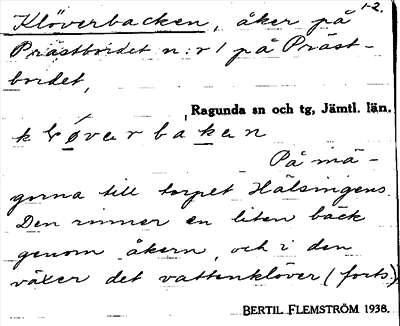 Klöverbacken, åker på 1-2.
Prästbordet n:r 1 på Präst-
bordet,
Ragunda sn och tg, Jämtl. län.
kløverbakan
På mä-
gorna till torpet Hälsingens.
Den rinner en liten bäck
genom åkern, och i den
växer det vattenklöver (forts.)
BERTIL FLEMSTRÖM 1938.